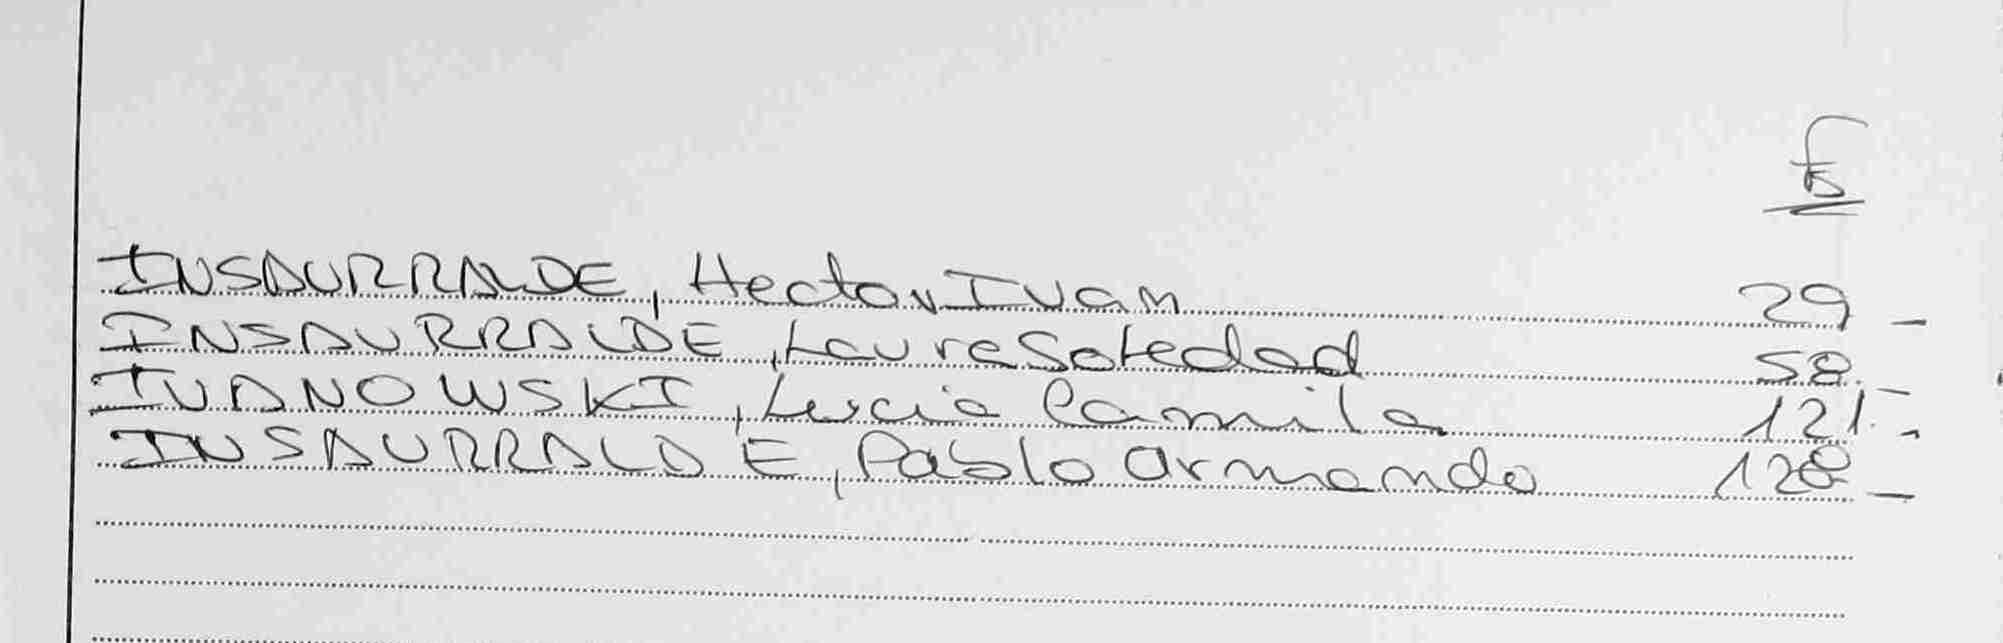 Fº
INSAURRALDE, Hector Ivan 29 -
INSAURRALDE, Laura Soledad 58. -
IVANOWSKI, Lucia Camila 121. -
INSAURRALDE, Pablo Armando 128 -